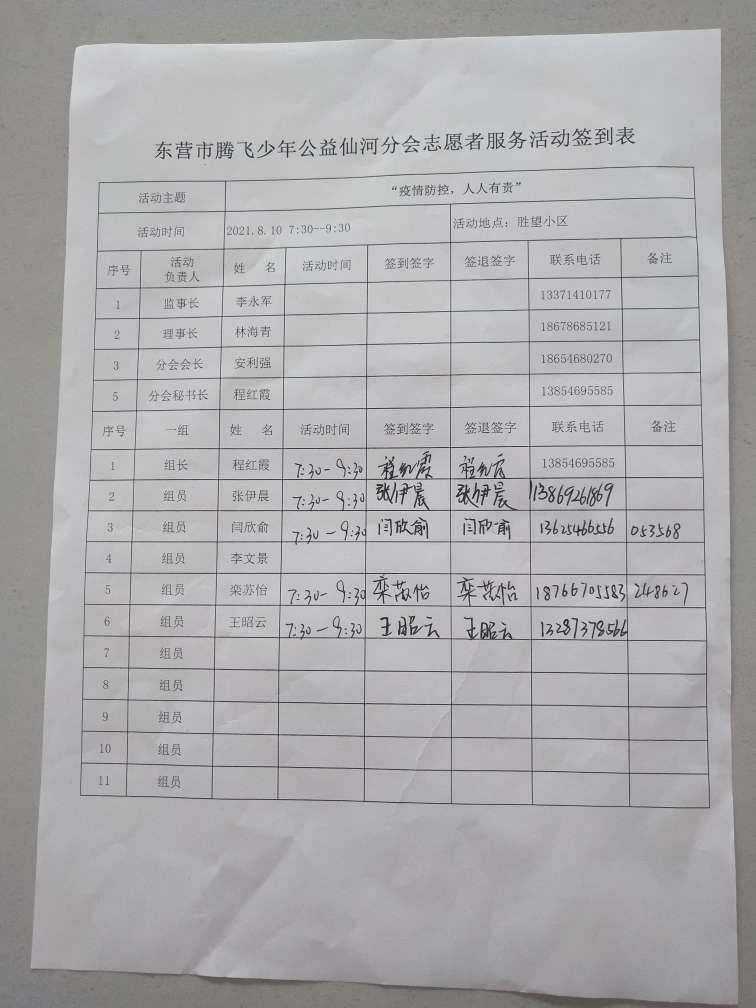 东营市腾飞少年公益仙河分会志愿者服务活动签到表
活动主题 “疫情防控，人人有责”
活动时间 2021.8.10 7:30--9:30 活动地点：胜望小区
序号 活动负责人 姓 名 活动时间 签到签字 签退签字 联系电话 备注
1 监事长 李永军 13371410177
2 理事长 林海青 18678685121
3 分会会长 安利强 18654680270
5 分会秘书长 程红霞 13854695585
序号 一组 姓 名 活动时间 签到签字 签退签字 联系电话 备注
1 组长 程红霞 7:30-9:30 程红霞 程红霞 13854695585
2 组员 张伊晨 7:30-9:30 张伊晨 张伊晨 13869261869
3 组员 闫欣俞 7:30-9:30 闫欣俞 闫欣俞 13625466556 053568
4 组员 李文景
5 组员 栾苏怡 7:30-9:30 栾苏怡 栾苏怡 18766705583 248627
6 组员 王昭云 7:30-9:30 王昭云 王昭云 13287378566
7 组员
8 组员
9 组员
10 组员
11 组员